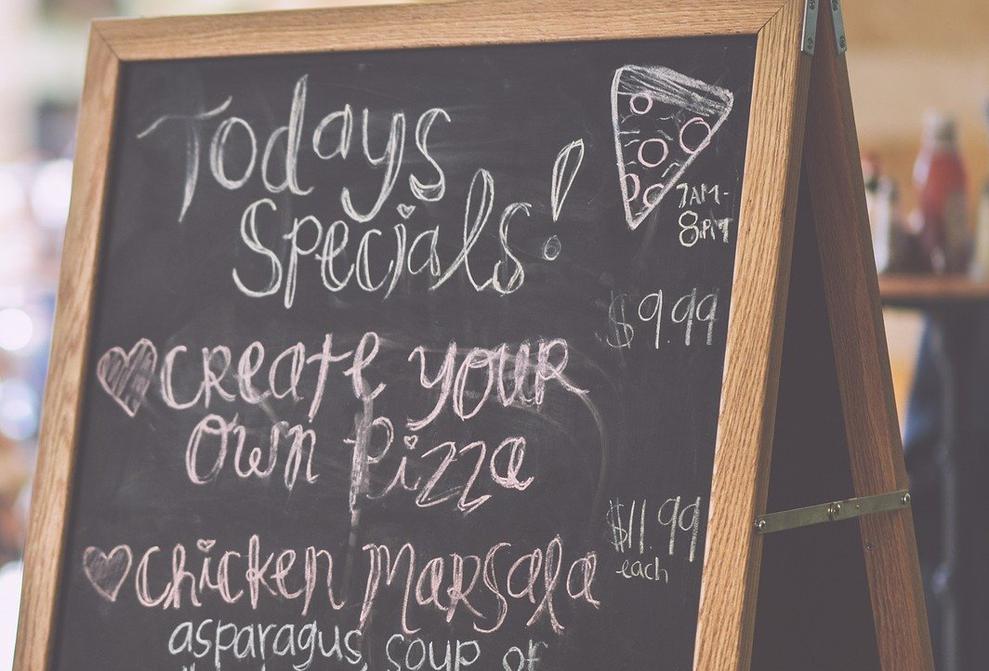 Todays
Specials!
7AM-
8PM
$9.99
Create your
Own Pizza
$11.99
each
Chicken Marsala
asparagus, soup of